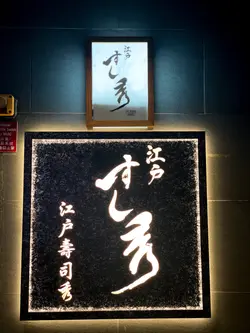 江戸
すし秀
江戸
すし秀
江戸壽司秀